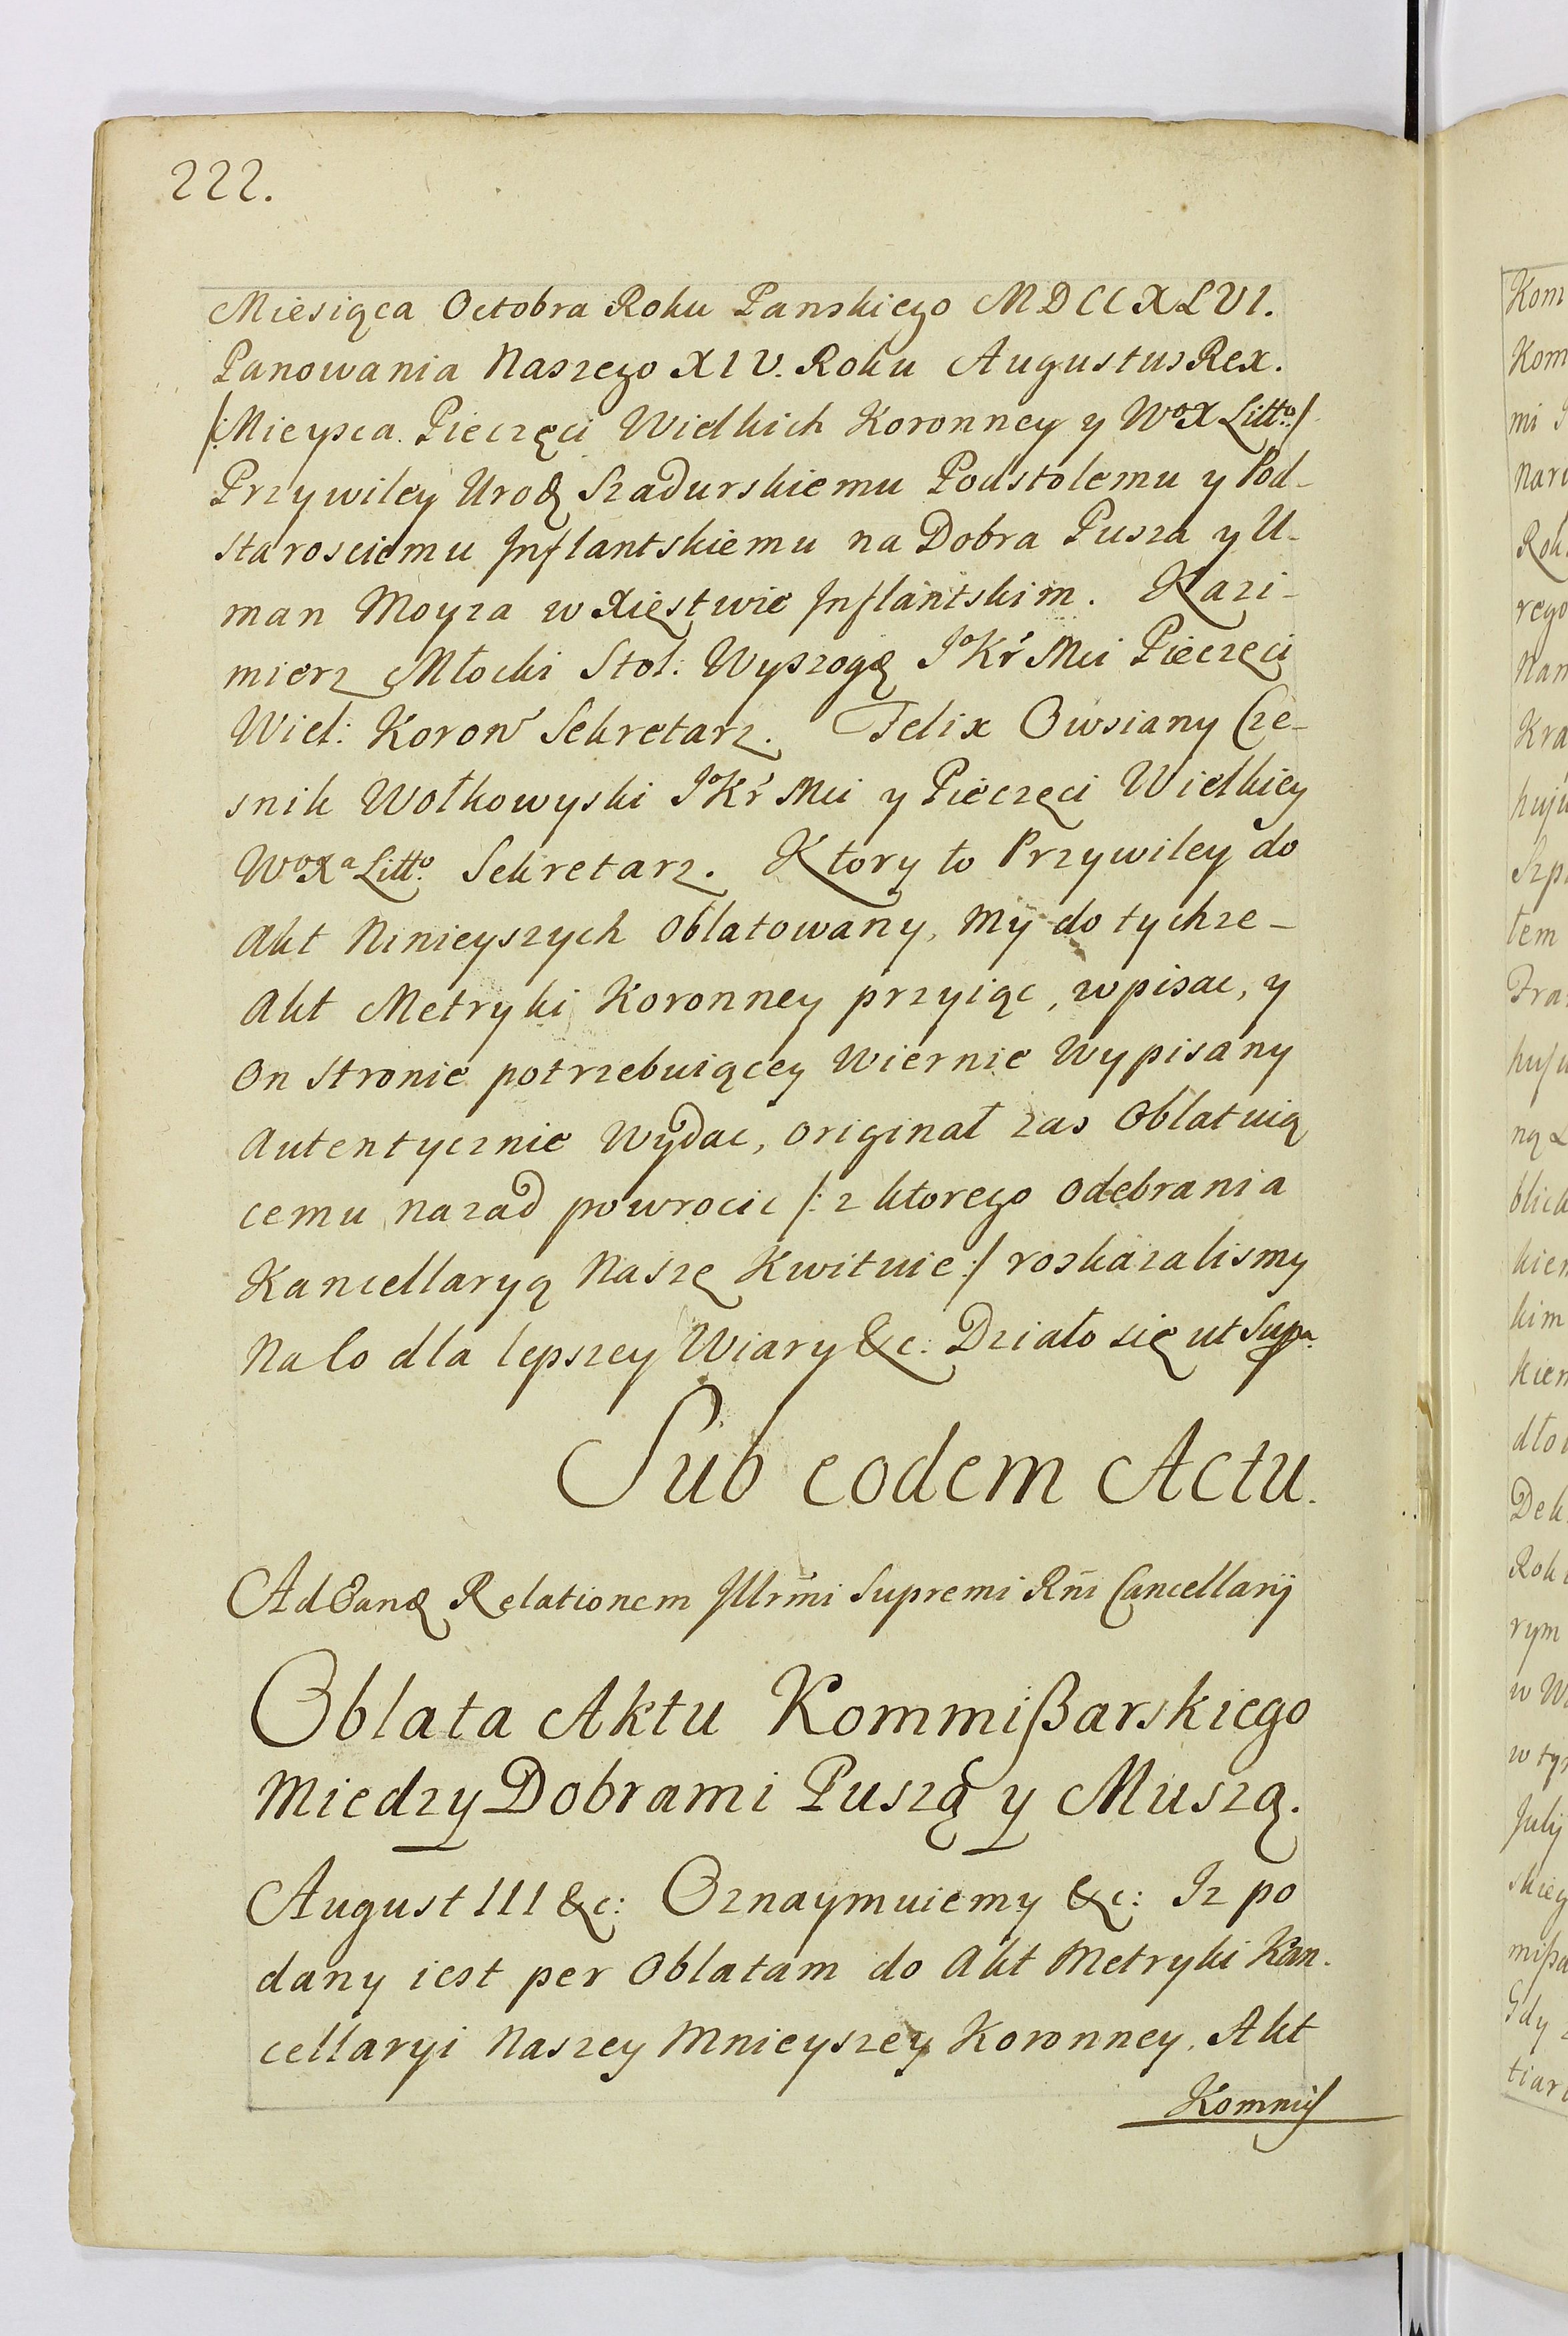 222.
Miesiąca Octobra Roku Panskiego MDCCXLVI.
Panowania Naszego XIV. Roku Augustus Rex.
/:Mieysca Pieczęci Wielkich Koronney y WoX Litto:/
Przywiley Urod Szadurskiemu Podstolemu y Pod-
starosciemu Inflantskiemu na Dobra Pusza y U-
man Moyza w Xięstwie Inflantskim. Kazi-
mierz Młocki Stol: Wyszogę JoKr Mci Pieczęci
Wiel: Koron Sekretarz. Felix Owsiany Cze-
snik Wołkowyski JoKr Mci y Pieczęci Wielkiey
WoXa Litto. Sekretarz. Ktory to Przywiley do
Akt Ninieyszych Oblatowany, My do tychze-
Akt Metryki Koronney przyiąc, wpisac, y
On Stronie potrzebuiącey Wiernie Wypisany
Autentycznie Wydac, originał zas Oblatuią
cemu nazad powrocic /: z ktorego odebrania
Kancellaryą Naszę Kwituie:/ roskazalismy
Na Co dla lepszey Wiary &c: Działo się ut Supa.
Sub eodem Actu.
Ad Eand Relationem Illrmi Supremi Rni Cancellarij
Oblata Aktu Kommißarskiego
Miedzy Dobrami Puszą y Muszą.
August III &c: Oznaymuiemy &c: Iz po
dany iest per Oblatam do Akt Metryki Kan.
cellaryi Naszey Mnieyszey Koronney. Akt
Kommis
Kom
Kom
mi
Nari
rego
Nam
Kra
huju
tem
Fra
huju
blick
kien
kim
kiem
dło
Dek
Rok
rym
w W
w ty
July
skiey
mißa
Gdy
tiar